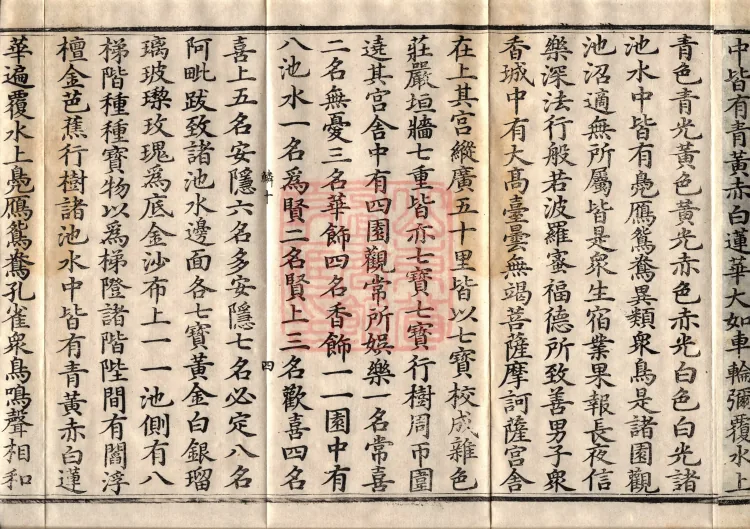 中皆有青黃赤白蓮華大如車輪彌覆水上
青色青光黃色黃光赤色赤光白色白光諸
池水中皆有鳧鴈鴛鴦異類衆鳥是諸園觀
池沼適無所屬皆是衆生宿業果報長夜信
樂深法行般若波羅蜜福德所致善男子衆
香城中有大髙臺曇無竭菩薩摩訶薩宮舎
在上其宮縱廣五十里皆以七寶校成雜色
莊嚴垣牆七重皆亦七寶七寶行樹周帀圍
遶其宮舎中有四園觀常所娛樂一名常喜
二名無憂三名華飾四名香飾一一園中有
八池水一名爲賢二名賢上三名歡喜四名
鱗十 四
喜上五名安隱六名多安隱七名必定八名
阿毗跋致諸池水邊面各七寶黃金白銀瑠
璃玻瓈玫瑰爲底金沙布上一一池側有八
梯階種種寶物以爲梯隥諸階陛間有閻浮
檀金芭蕉行樹諸池水中皆有青黃赤白蓮
華遍覆水上鳧鴈鴛鴦孔雀衆鳥鳴聲相和